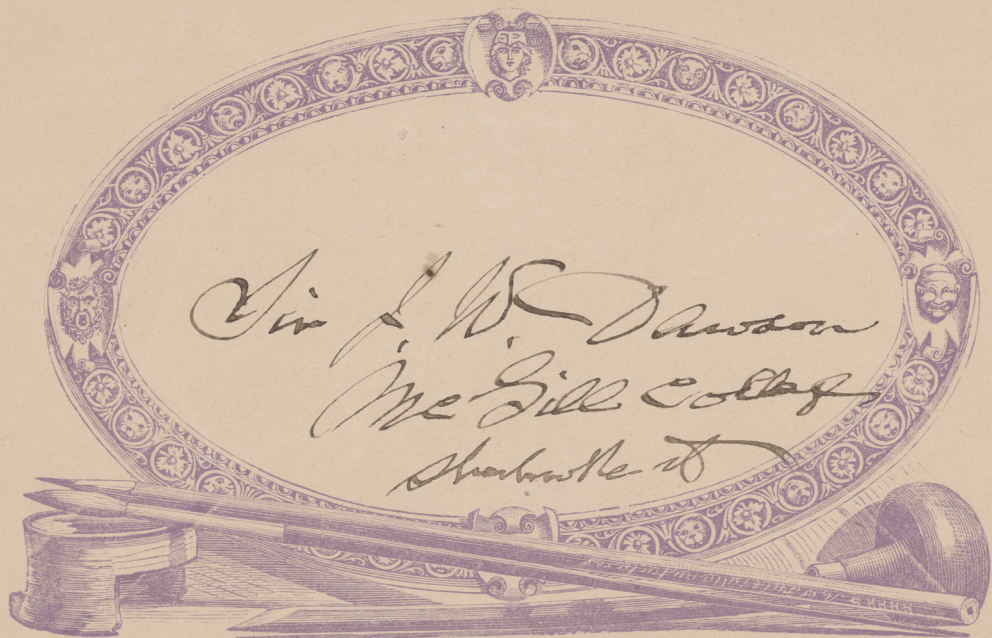 Sir J. W. Dawson
McGill College
Sherbrooke st